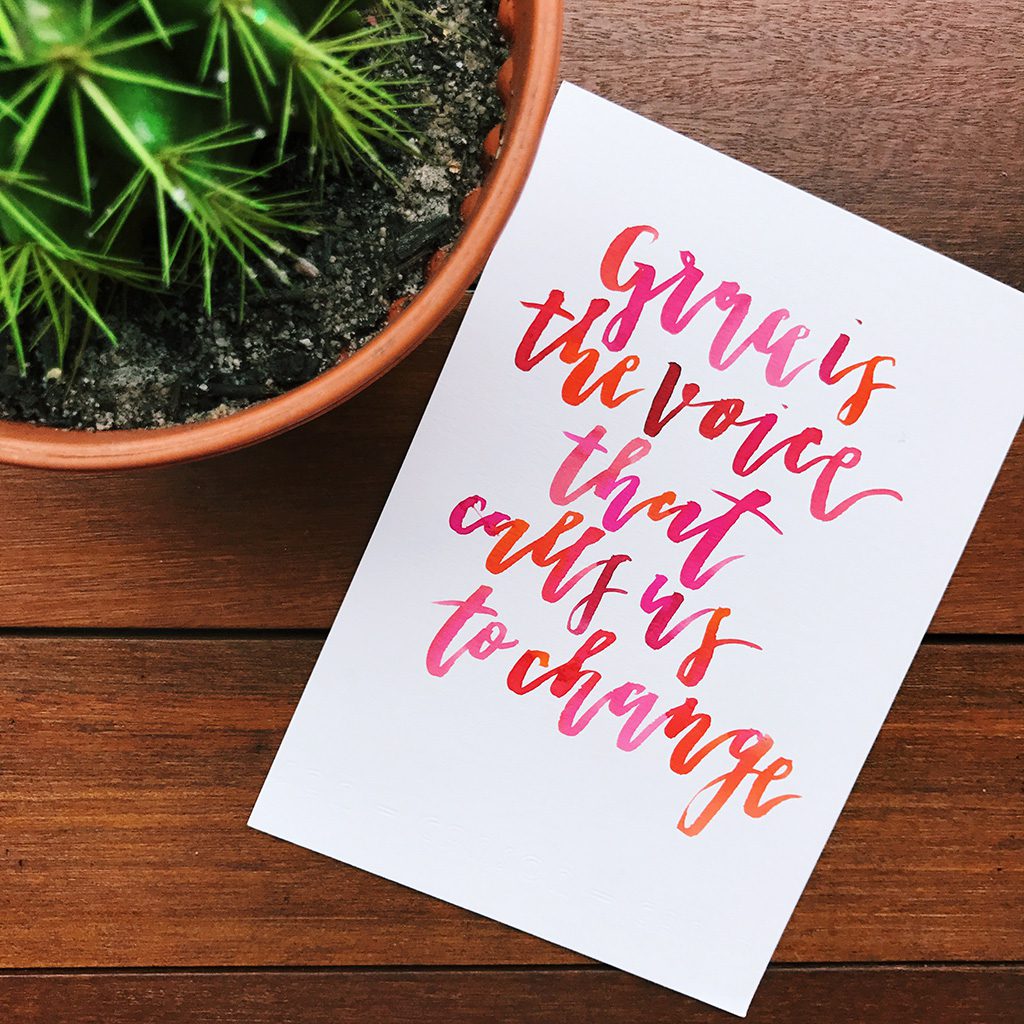 Grace is
the voice
that
calls us
to change